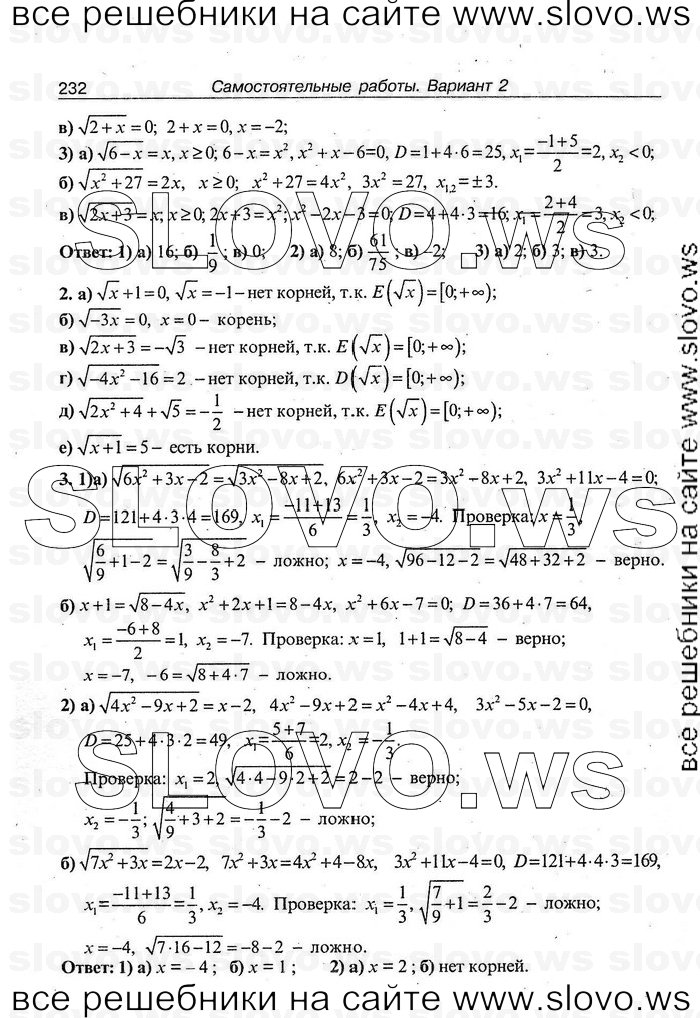 все решебники на сайте www.slovo.ws
232 Самостоятельные работы. Вариант 2
в) √(2+x) = 0; 2+x=0, x=−2;
3) а) √(6−x) = x, x≥0; 6−x=x², x²+x−6=0, D=1+4·6=25, x₁=(−1+5)/2=2, x₂<0;
б) √(x²+27) = 2x, x≥0; x²+27=4x², 3x²=27, x₁,₂=±3.
в) √(2x+3) = x; x≥0; 2x+3=x²; x²−2x−3=0; D=4+4·3=16; x₁=(2+4)/2=3, x₂<0;
Ответ: 1) а) 16; б) 1/9; в) 0; 2) а) 8; б) 61/75; в) −2; 3) а) 2; б) 3; в) 3.
2. а) √x+1=0, √x=−1 – нет корней, т.к. E(√x)=[0;+∞);
б) √(−3x)=0, x=0 – корень;
в) √(2x+3)=−√3 – нет корней, т.к. E(√x)=[0;+∞);
г) √(−4x²−16)=2 – нет корней, т.к. D(√x)=[0;+∞);
д) √(2x²+4)+√5=−1/2 – нет корней, т.к. E(√x)=[0;+∞);
е) √(x+1)=5 – есть корни.
3. 1)а) √(6x²+3x−2)=√(3x²−8x+2), 6x²+3x−2=3x²−8x+2, 3x²+11x−4=0;
D=121+4·3·4=169, x₁=(−11+13)/6=1/3, x₂=−4. Проверка: x=1/3,
√(6/9+1−2)=√(3/9−8/3+2) – ложно; x=−4, √(96−12−2)=√(48+32+2) – верно.
б) x+1=√(8−4x), x²+2x+1=8−4x, x²+6x−7=0; D=36+4·7=64,
x₁=(−6+8)/2=1, x₂=−7. Проверка: x=1, 1+1=√(8−4) – верно;
x=−7, −6=√(8+4·7) – ложно.
2) а) √(4x²−9x+2)=x−2, 4x²−9x+2=x²−4x+4, 3x²−5x−2=0,
D=25+4·3·2=49, x₁=(5+7)/6=2, x₂=−1/3.
Проверка: x₁=2, √(4·4−9·2+2)=2−2 – верно;
x₂=−1/3; √(4/9+3+2)=−1/3−2 – ложно;
б) √(7x²+3x)=2x−2, 7x²+3x=4x²+4−8x, 3x²+11x−4=0, D=121+4·4·3=169,
x₁=(−11+13)/6=1/3, x₂=−4. Проверка: x₁=1/3, √(7/9+1)=2/3−2 – ложно;
x=−4, √(7·16−12)=−8−2 – ложно.
Ответ: 1) а) x=−4; б) x=1; 2) а) x=2; б) нет корней.
все решебники на сайте www.slovo.ws
все решебники на сайте www.slovo.ws
SLOVO.ws
SLOVO.ws
SLOVO.ws